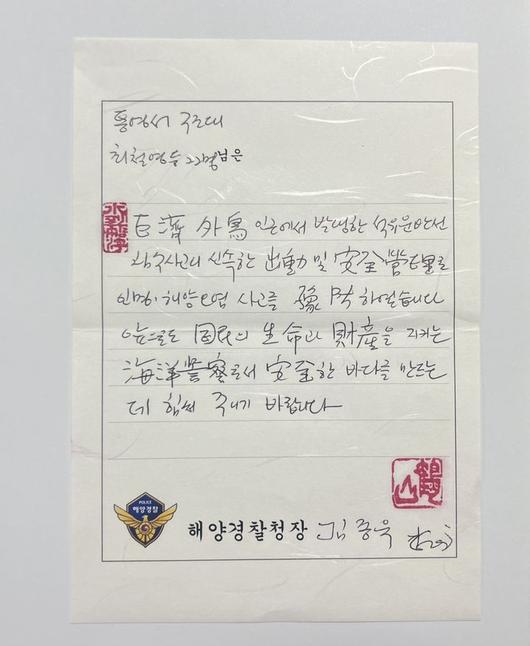 통영서 구조대
최철영 등 23명님은
巨濟 外島 인근에서 발생한 석유운반선
침수사고에 신속한 出動 및 安全管理로
인명, 해양오염 사고를 豫防 하였습니다
앞으로도 国民의 生命과 財産을 지키는
海洋警察로서 安全한 바다를 만드는
데 힘써 주시기 바랍니다
POLICE
해양경찰
해양경찰청장 김종욱